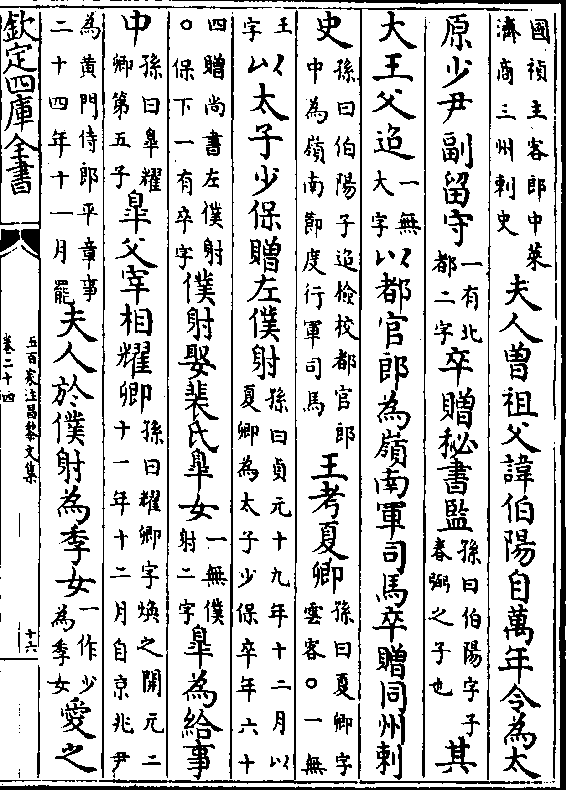 國禎主客郎中萊
濟商三州刺史
夫人曾祖父諱伯陽自萬年令為太
原少尹副留守
一有北
都二字
卒贈秘書監
孫曰伯陽字子
春弼之子也
其
大王父迨
一無
大字
以都官郎為嶺南軍司馬卒贈同州刺
史
孫曰伯陽子迨檢校都官郎
中為嶺南節度行軍司馬
王考夏卿
孫曰夏卿字
雲客○一無
王
字
以太子少保贈左僕射
孫曰貞元十九年十二月以
夏卿為太子少保卒年六十
四贈尚書左僕射
○保下一有卒字
僕射娶裴氏臯女
一無僕
射二字
臯為給事
中
孫曰臯耀
卿第五子
臯父宰相耀卿
孫曰耀卿字煥之開元二
十一年十二月自京兆尹
為黄門侍郎平章事
二十四年十一月罷
夫人於僕射為季女
一作少
為季女
愛之
欽定四庫全書
五百家注昌黎文集
卷二十四
十六